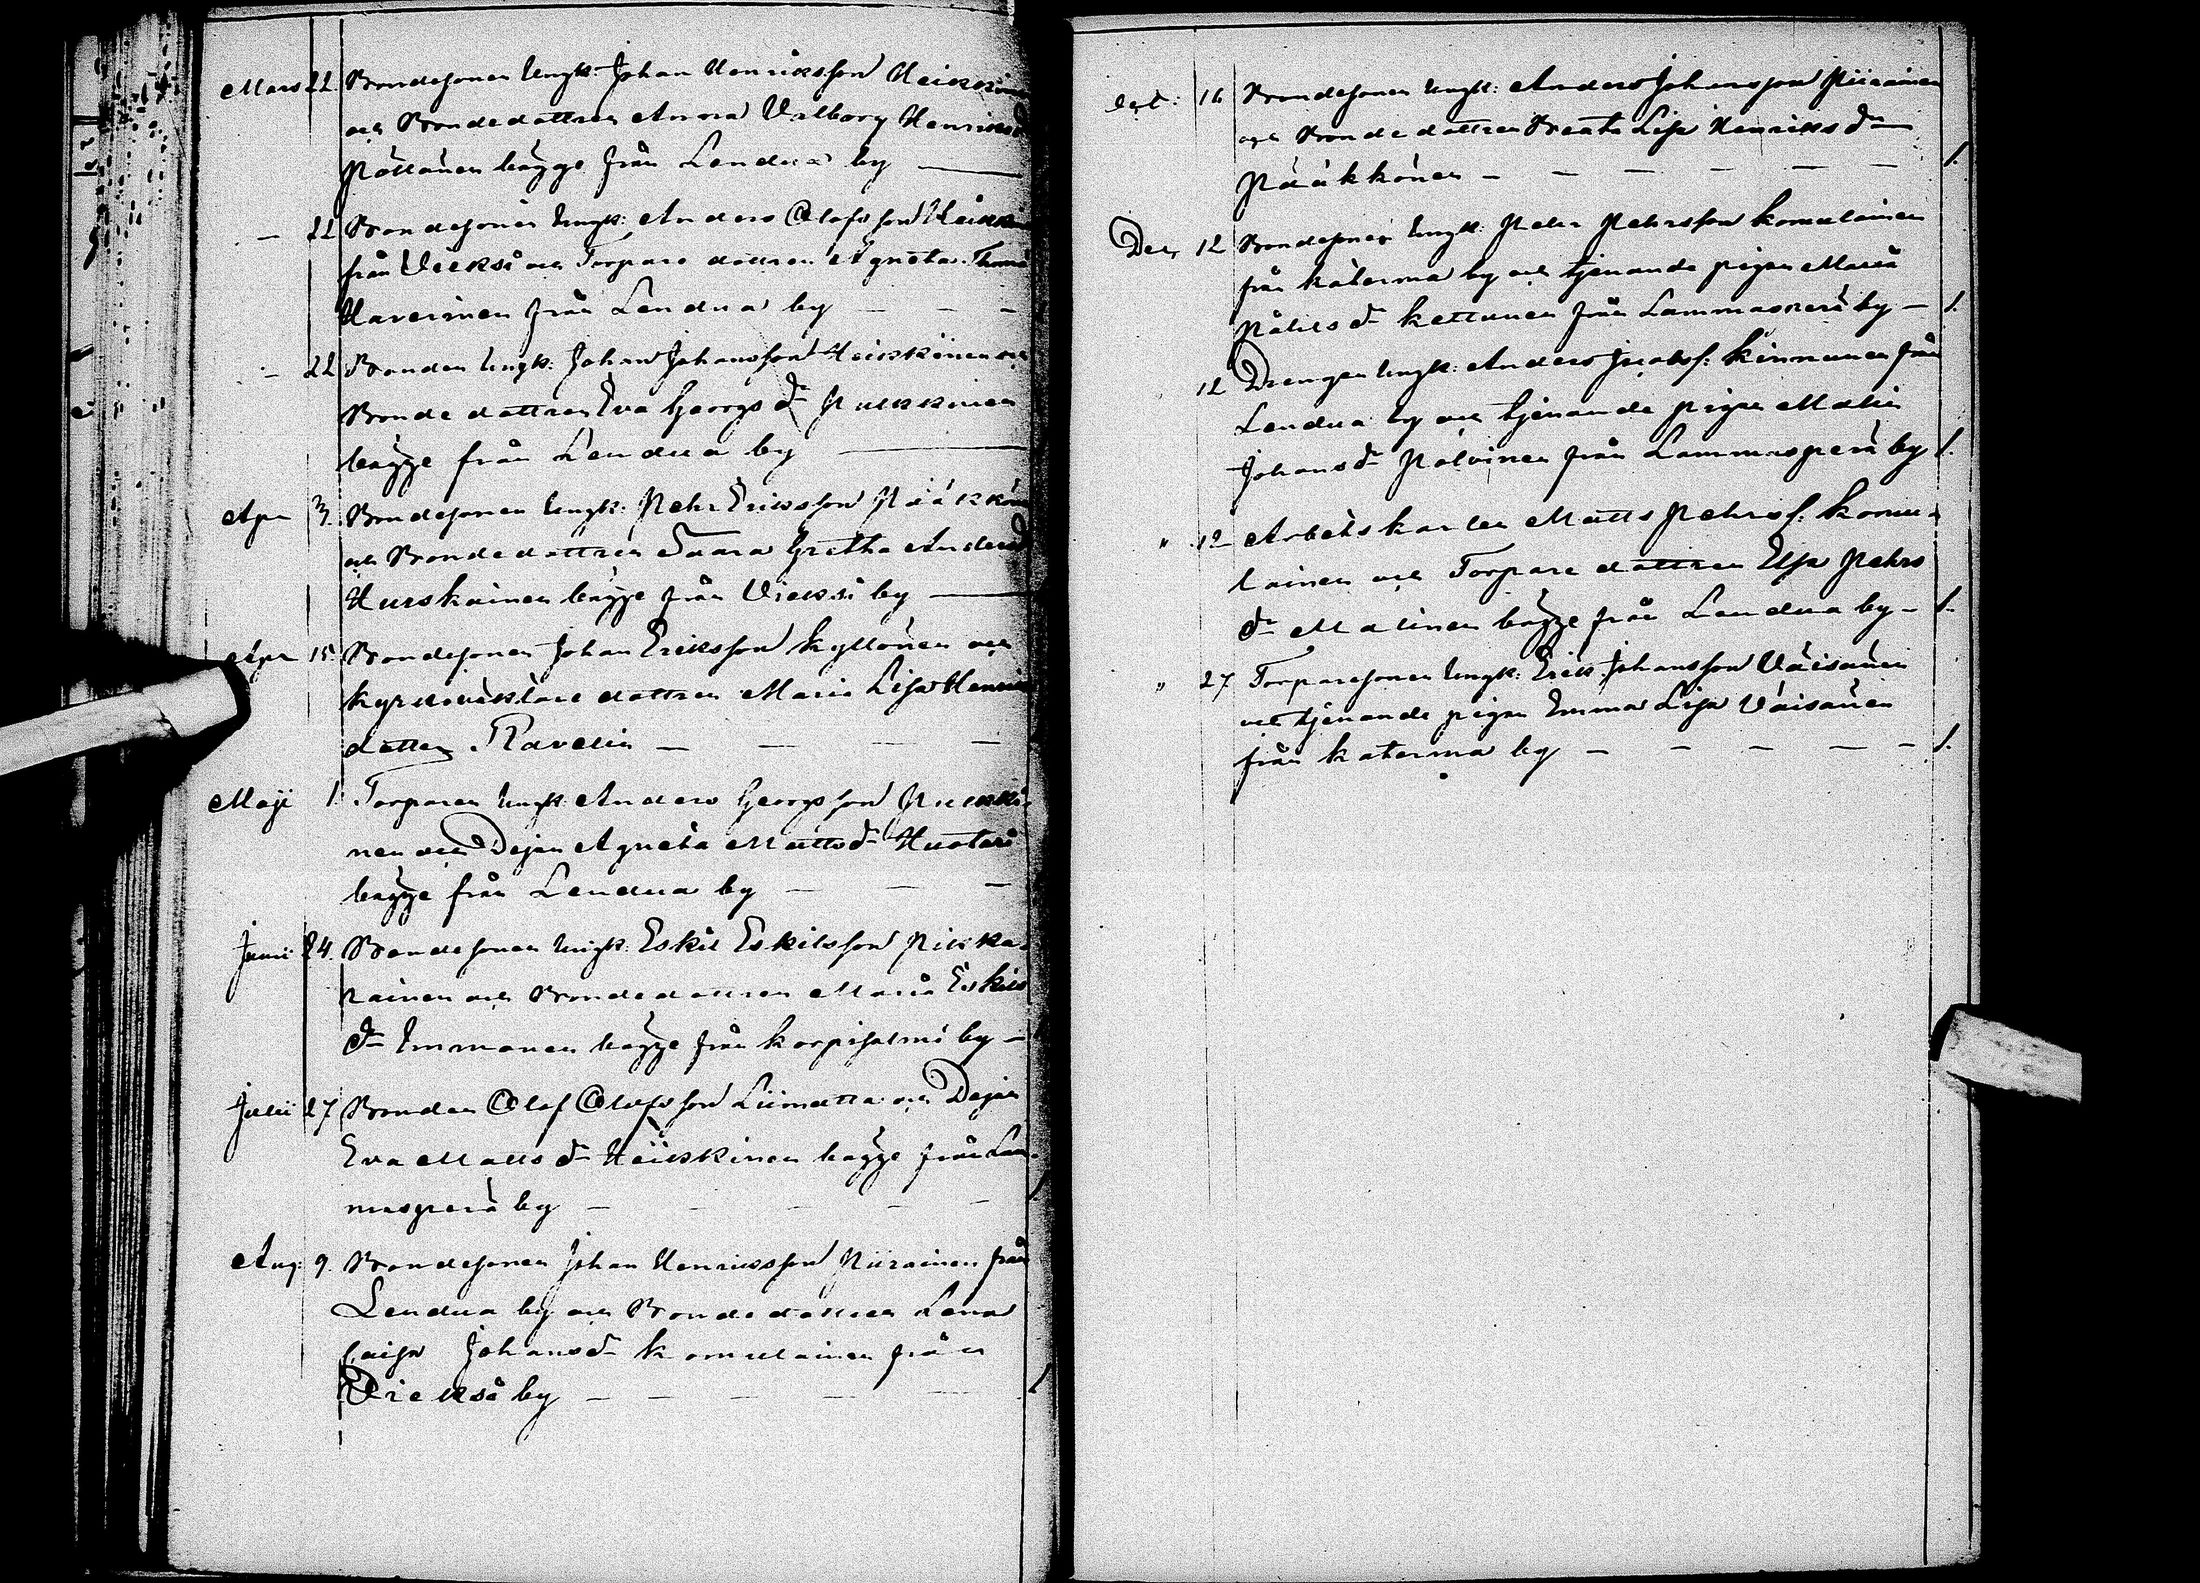 Mars 22 Bondesonen Ungk: Johan Henriksson Heiskinen
och Bondedottren Anna Valborg Henriksd
Pöllänen bägge från Lendua by —
— 22 Bondesonen Ungk: Anders Olofsson
från Vieksi och Torpare dottren Agneta
Haverinen från Lendua by — — —
— 22 Bonden Ungk. Johan Johansson Heiskinen och
Bonde dottren Eva Georgs dr
bägge från Lendua by —
Apr 3. Bondesonen Ungk. Pehr Eriksson Pääkkön
och Bondedottren Saara Gretha Andersd
Hurskainen bägge från Vieksi by —
Apr 15. Bondesonen Johan Eriksson Kyllönen och
kyrkoväktare dottren Maria Lisa Henriks
dotter Ravelin — — — —
Maji 1. Torparen Ungk. Anders Georgsson
nen och Dejan Agneta Mattsdr Huotari
bägge från Lendua by — — —
Junii 24. Bondesonen Ungk: Eskil Eskilsson Pikka-
rainen och Bondedottren Maria Eskils
dr Immonen bägge från Korpisalmi by —
Julii 27 Bonden Olof Olofsson Liimatta och Dejan
Eva Matts dr Heiskinen bägge från Lam-
masperä by — — — — —
Aug. 9. Bondesonen Johan Henriksson Piirainen från
Lendua by och Bondedottren Lena
Caisa Johansdr Komulainen från
Vieksi by — — — — — 1
Oct. 16 Bondesonen Ungk: Anders Johansson Piirainen
och Bondedottren Beata Lisa Henriks dr
Pääkkönen — — — — — 1.
Dec. 12 Bondesonen Ungk: Pehr Pehrsson Komulainen
från Katerma by och tjenande pigan Maria
Påhlsdr Kettunen från Lammasperä by — 1.
" 12 Drengen Ungk: Anders Jacobs: Kinnunen från
Lendua by och tjenande pigan Malin
Johansdr Polvinen från Lammasperä by 1.
" 12 Arbetskarlen Matts Pehrss: Komu-
lainen och Torpare dottren Elsa Pehrs
dr Malinen bägge från Lendua by — 1.
" 27 Torparesonen Ungk: Erik Johansson Väisänen
och tjenande pigan Emma Lisa Väisänen
från Katerma by — — — — — 1.